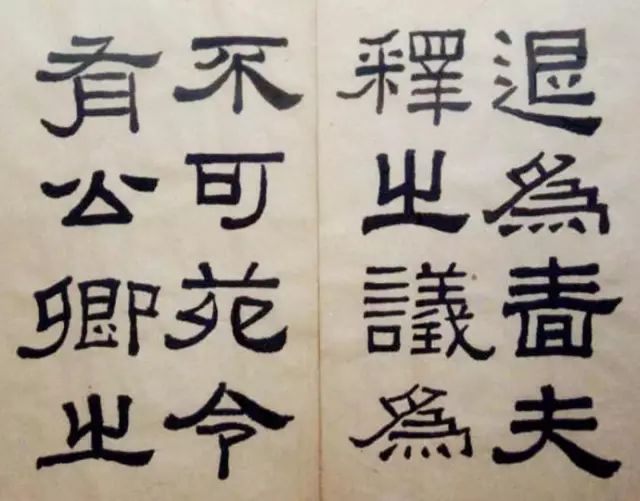 退為嗇夫
釋之議為
不可苑令
有公卿之